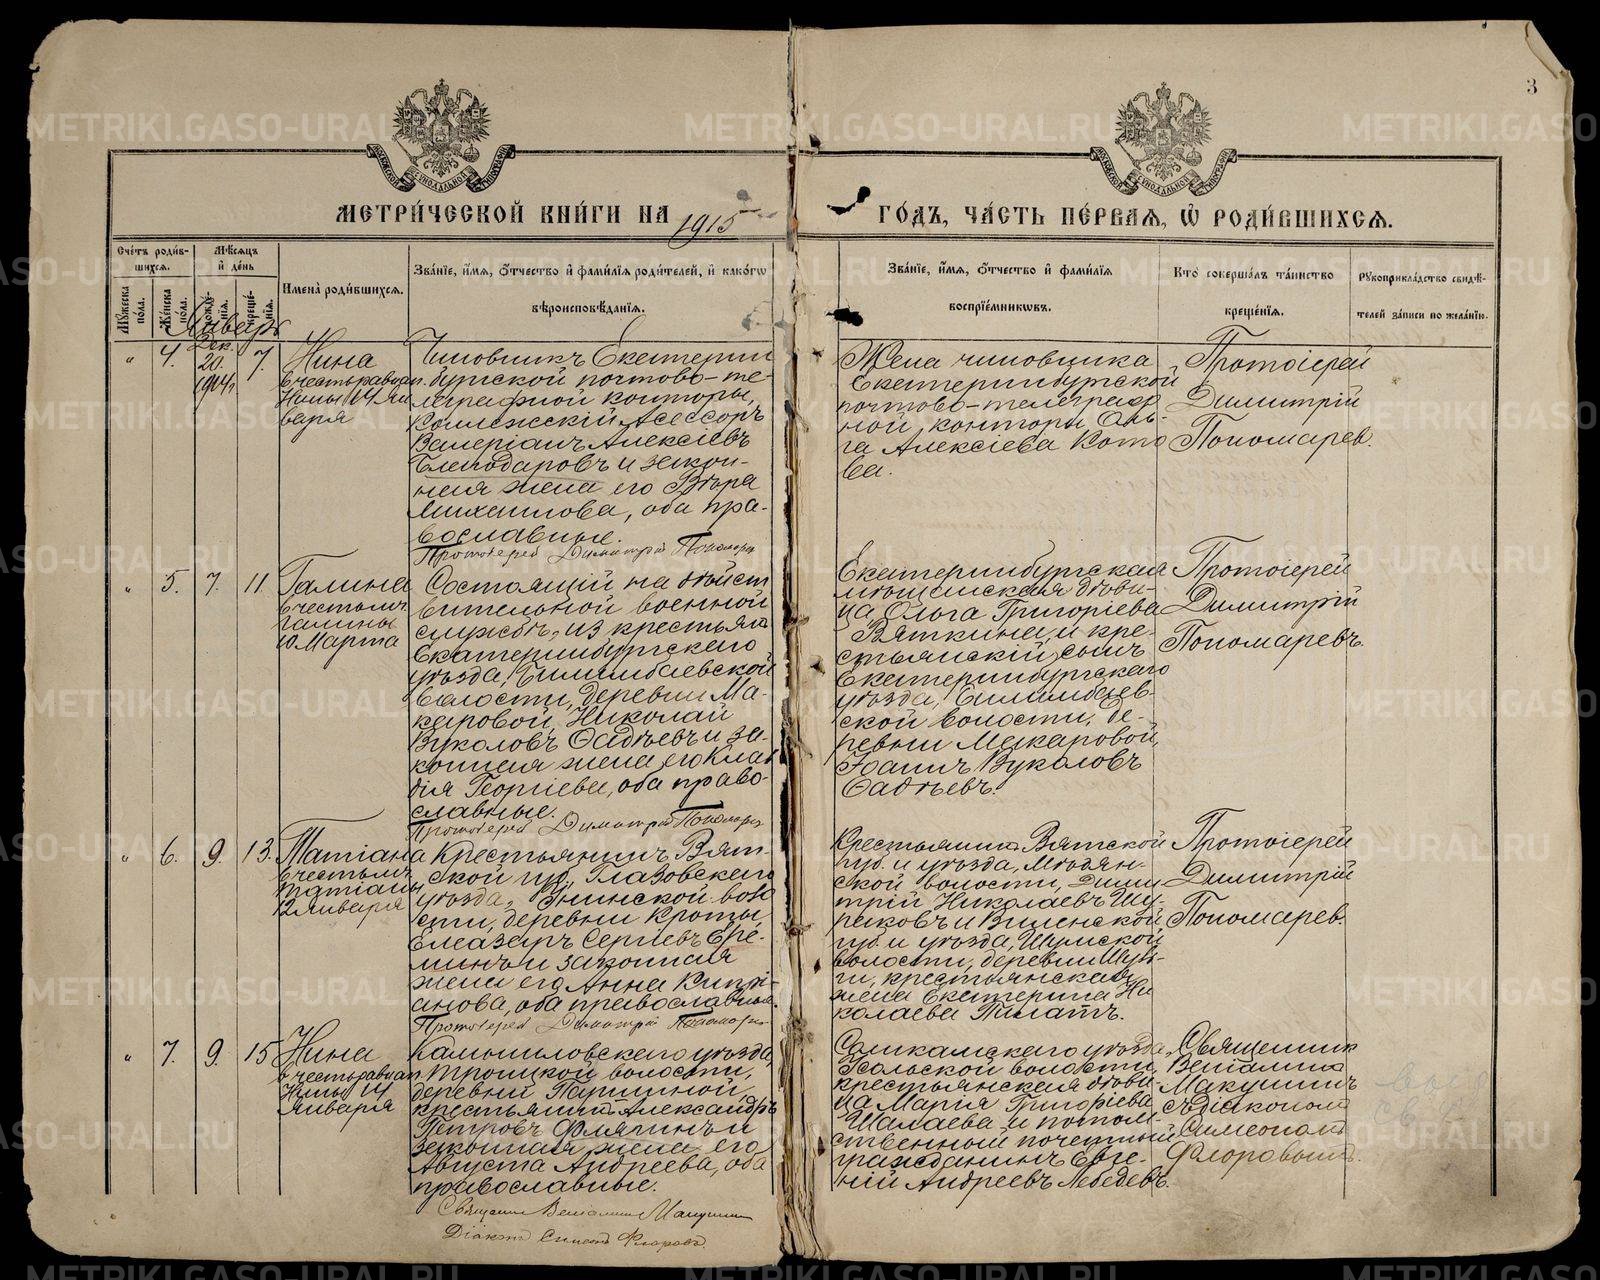 3
МЕТРИ́ЧЕСКОЙ КНИ́ГИ НА 1915 ГО́ДЪ, ЧА́СТЬ ПЕ́РВАЯ, Ѡ҆ РОДИ́ВШИХСЯ.
Сче́тъ роди́в-
шихся.
Мѣ́сяцъ
и҆ де́нь
Мꙋжеска по́ла.
Же́нска по́ла.
рожде́-
нїя.
креще́-
нїя.
И҆мена̀ роди́вшихся.
Зва́нїе, и҆́мя, ѻ҆́тчество и҆ фами́лїя роди́телей, и҆ како́гѡ
вѣроисповѣ́данїя.
Зва́нїе, и҆́мя, ѻ҆́тчество и҆ фами́лїя
воспрїе́мникѡвъ.
Кто̀ соверша́лъ та́инство
креще́нїя.
Рꙋкоприкла́дство свидѣ́-
телей за́писи по жела́нїю.
Январь
„ 4. Дек.
20.
1914 г.
7.
Нина
в честь равноап.
Нины 14 Ян
варя
Чиновникъ Екатерин
бургской почтово-те-
леграфной конторы,
Коллежскій Асессоръ
Валеріанъ Алексіевъ
Благодаровъ и закон-
ная жена его Вѣра
Михаилова, оба пра-
вославные.
Протоіерей Димитрій Пономарев
Жена чиновника
Екатеринбургской
почтово-телеграф
ной конторы Оль-
га Алексіева Кото
ва.
Протоіерей
Димитрій
Пономарев.
„ 5. 7. 11
Галина
в честь мч.
галины
10 Марта
Состоящій на дѣйст
вительной военной
службѣ, из крестьянъ
Екатеринбургскаго
уѣзда, Билимбаевской
волости, деревни Ма-
каровой, Николай
Вуколовъ Фадѣевъ и за-
конная жена его Клав
дія Георгіева, оба право-
славные.
Протоіерей Димитрій Пономарев
Екатеринбургская
мѣщанская дѣви-
ца Ольга Григоріева
Вяткина, и кре-
стьянскій сынъ
Екатеринбургскаго
уѣзда, Билимбаев-
ской волости, де-
ревни Макаровой,
Іоаннъ Вуколовъ
Фадѣевъ.
Протоіерей
Димитрій
Пономаревъ.
„ 6. 9. 13.
Татіана
в честь мч.
татіаны
12 Января
Крестьянинъ Вят-
ской губ., Глазовскаго
уѣзда, Унинской воло
сти, деревни Кроты
Елеазаръ Сергіевъ Ере-
минъ и законная
жена его Анна Кипрі-
анова, оба православные.
Протоіерей Димитрій Пономарев
Крестьянинъ Вятской
губ. и уѣзда, Мѣдян-
ской волости, Дими
трій Николаевъ Шу-
риковъ и Виленской
губ. и уѣзда, Шумской
волости, деревни Шуй-
ги, крестьянская
жена Екатерина Ни
колаева Пилатъ.
Протоіерей
Димитрій
Пономарев.
„ 7. 9. 15
Нина
в честь равноап.
Нины 14
Января
Камышловскаго уѣзда,
Троицкой волости,
деревни Паршиной
крестьянинъ Александръ
Петровъ Фляпинъ и
законная жена его
Августа Андреева, оба
православные.
Священникъ Веніаминъ Макушинъ
Діаконъ Симеонъ Флоровъ.
Соликамскаго уѣзда,
Усольской волости,
крестьянская дѣви-
ца Марія Григоріева
Шалаева и потом-
ственный почетный
гражданинъ Евге-
ній Андреевъ Лебедевъ.
Священник
Веніаминъ
Макушинъ
съ діакономъ
Симеономъ
Флоровымъ.